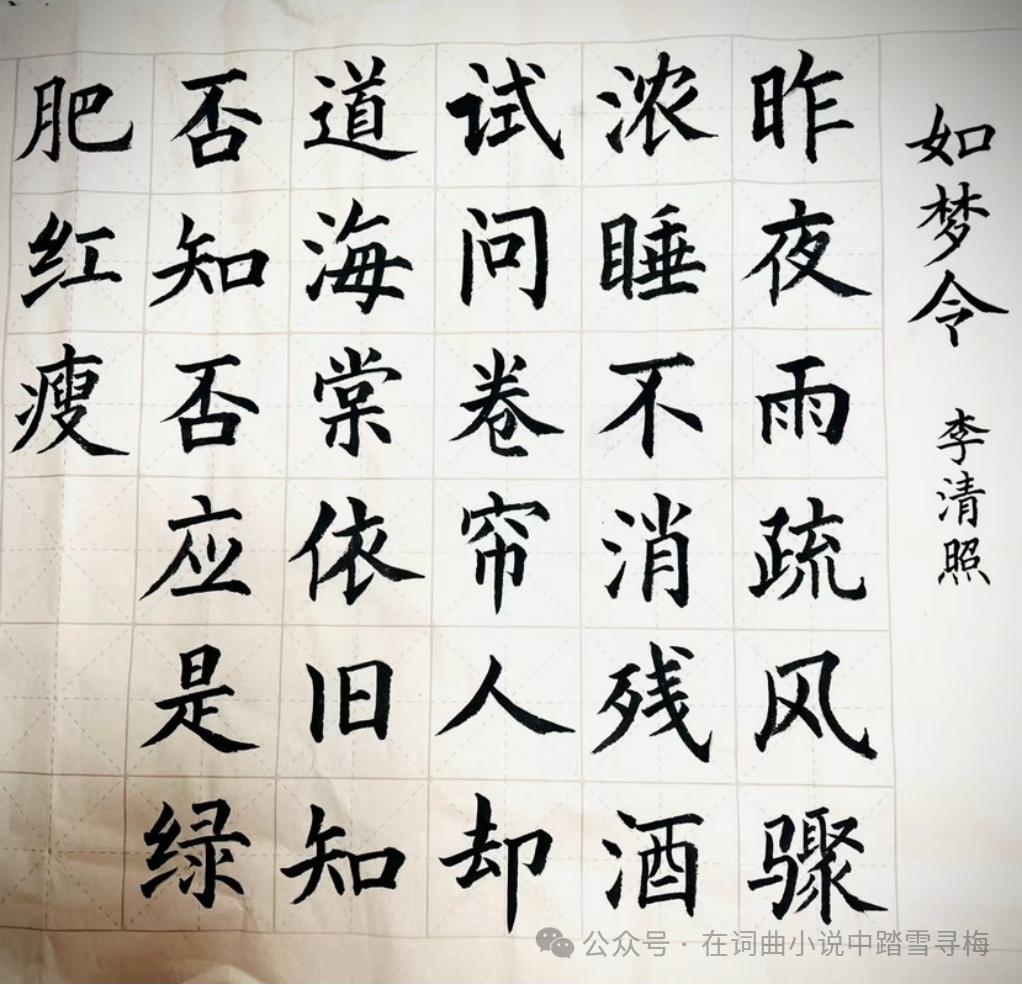 如梦令 李清照
昨夜雨疏风骤
浓睡不消残酒
试问卷帘人却
道海棠依旧知
否知否应是绿
肥红瘦
公众号·在词曲小说中踏雪寻梅